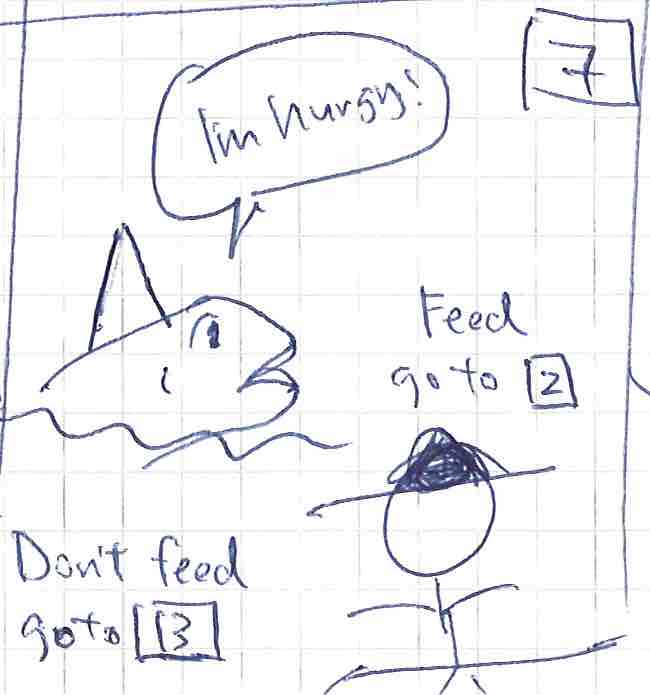 7
I'm hurgy!
Feed
go to 2
Don't feed
go to 13